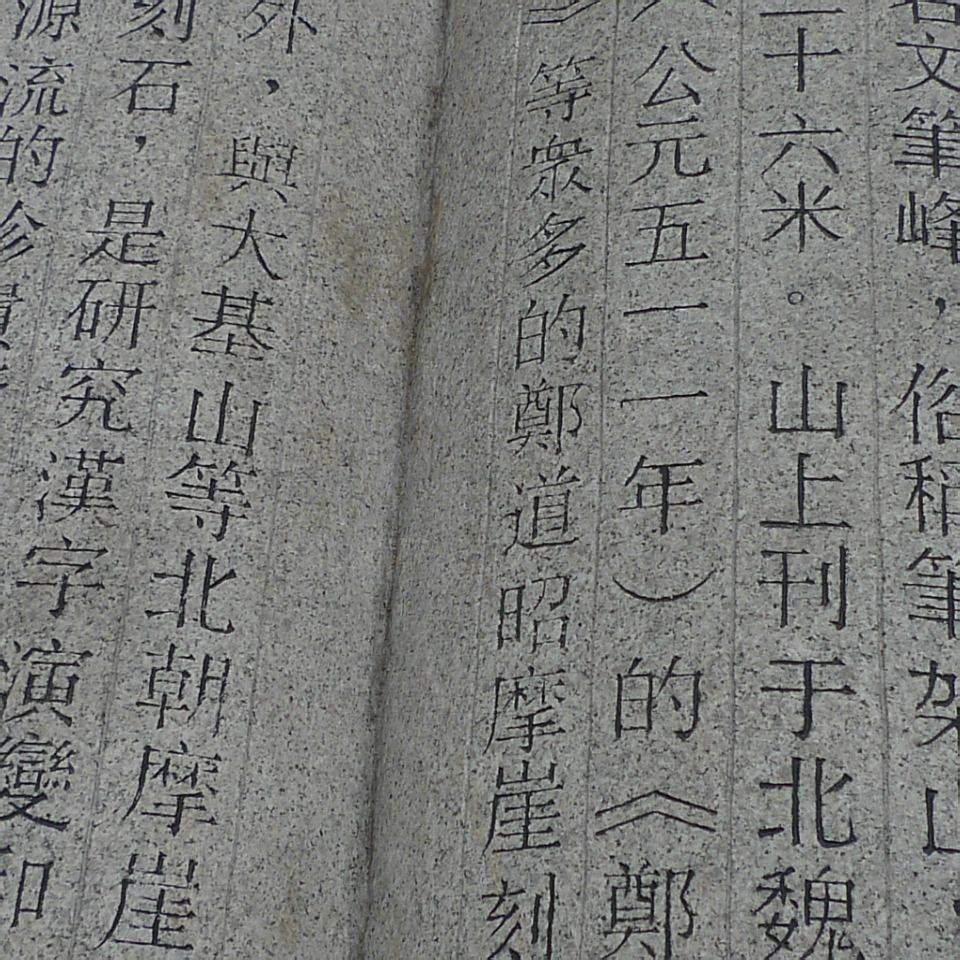 文筆峰，俗稱筆架山
二十六米。山上刊于北魏
公元五一一年）的《鄭
等衆多的鄭道昭摩崖刻
外，與大基山等北朝摩崖
刻石，是研究漢字
源流的珍貴
演變和